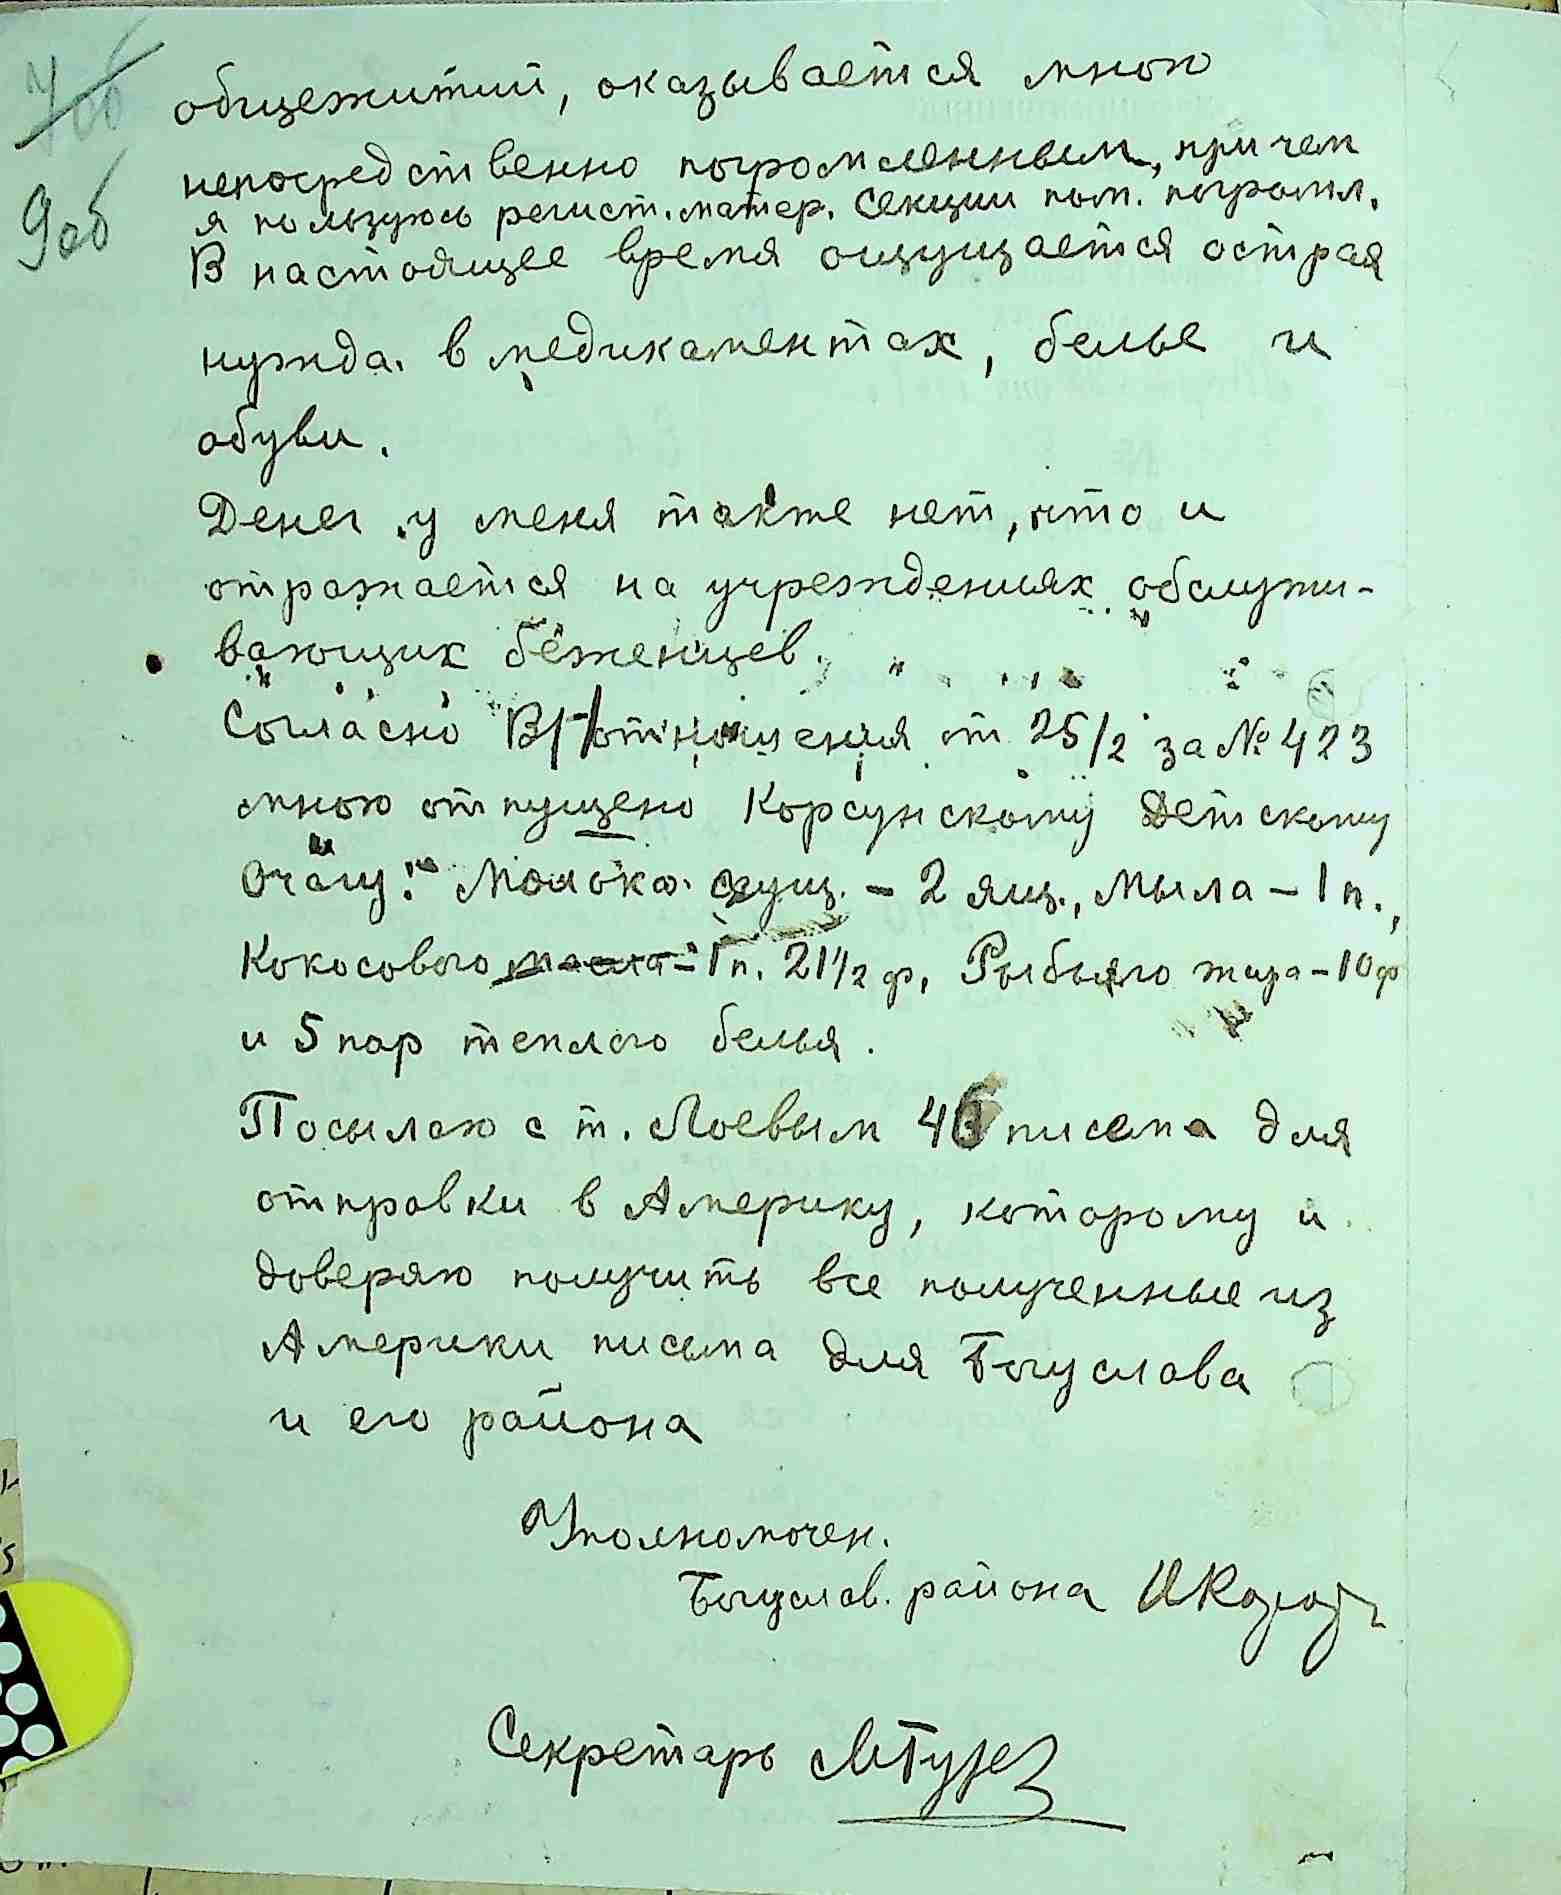 7об
9об
общежитий, оказывается мною
непосредственно погромленным, при чем
я пользуюсь регист. матер. Секции пом. погромл.
В настоящее время ощущается острая
нужда в медикаментах, белье и
обуви.
Денег у меня также нет, что и
отражается на учреждениях обслужи-
вающих беженцев.
Согласно В/отношения от 25/2 за № 423
мною отпущено Корсунскому Детскому
Очагу: Молока сгущ. - 2 ящ., Мыла - 1 п.,
Кокосового масла - 1 п. 21 1/2 ф, Рыбьяго жира - 10 ф
и 5 пар теплого белья.
Посылаю с т. Лоевым писема для
отправки в Америку, которому и
доверяю получить все полученные из
Америки письма для Богуслава
и его района
Уполномочен.
Богуслав. района
Секретарь